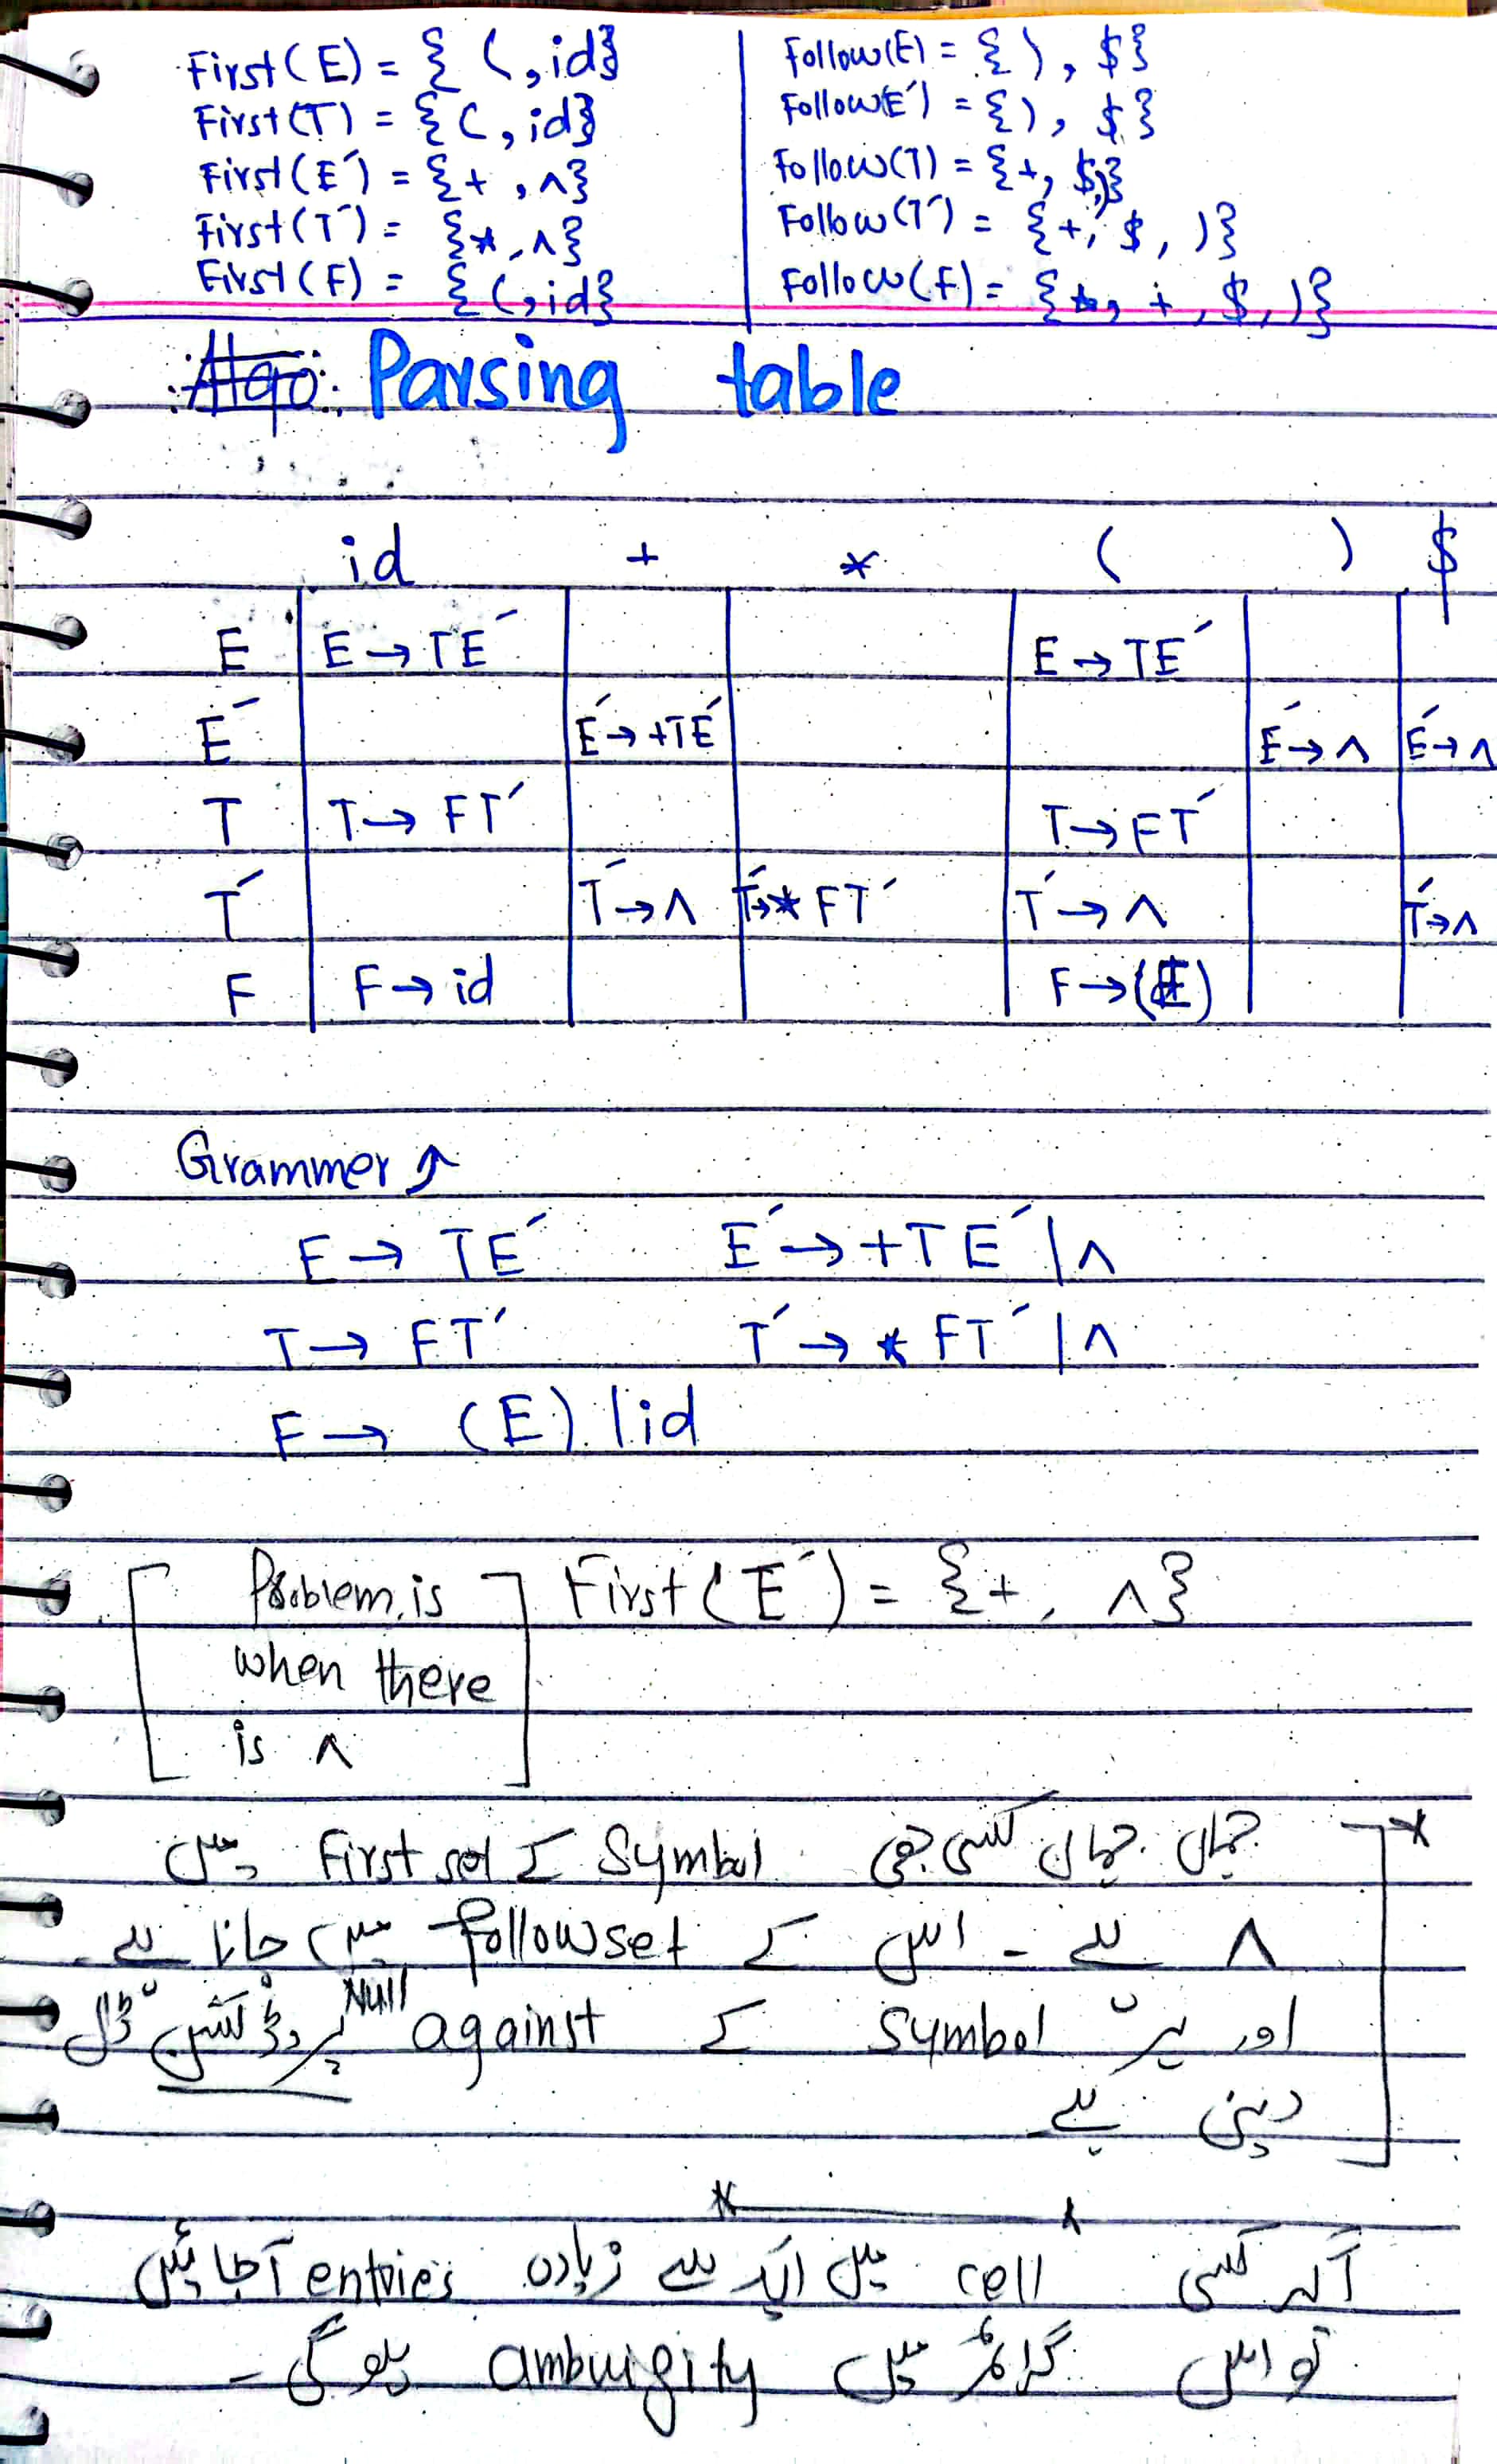 First(E) = { (, id}
First(T) = { (, id}
First(E′) = {+, ∧}
First(T′) = {*, ∧}
First(F) = { (, id}
Follow(E) = { ), $}
Follow(E′) = { ), $}
Follow(T) = {+, $, )}
Follow(T′) = {+, $, )}
Follow(F) = {*, +, $, )}
Parsing table
id + * ( ) $
E E → TE′ E → TE′
E′ E′ → +TE′ E′ → ∧ E′ → ∧
T T → FT′ T → FT′
T′ T′ → ∧ T′ → *FT′ T′ → ∧ T′ → ∧
F F → id F → (E)
Grammer
E → TE′ E′ → +TE′ | ∧
T → FT′ T′ → *FT′ | ∧
F → (E) | id
Problem is
when there
is ∧
First(E′) = {+, ∧}
* جہاں جہاں کسی بھی Symbol کے First set میں
∧ ہے ۔ اس کے follow set میں جانا ہے ۔
اور ہر Symbol کے against Null پروڈکشن ڈال
دینی ہے
اگر کسی cell میں ایک سے زیادہ entries آجائیں
تو اس گرائمر میں ambuigity ہوگی ۔